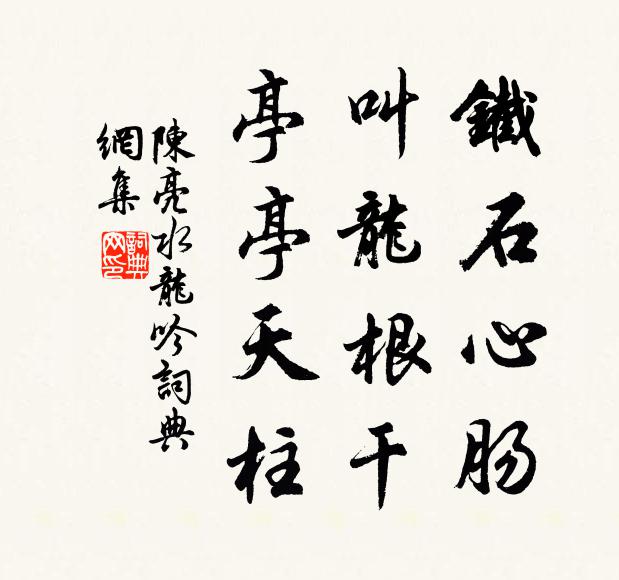 鐵石心腸
叫龍根干
亭亭天柱
陳亮水龍吟詞典
網集
詞典
网印